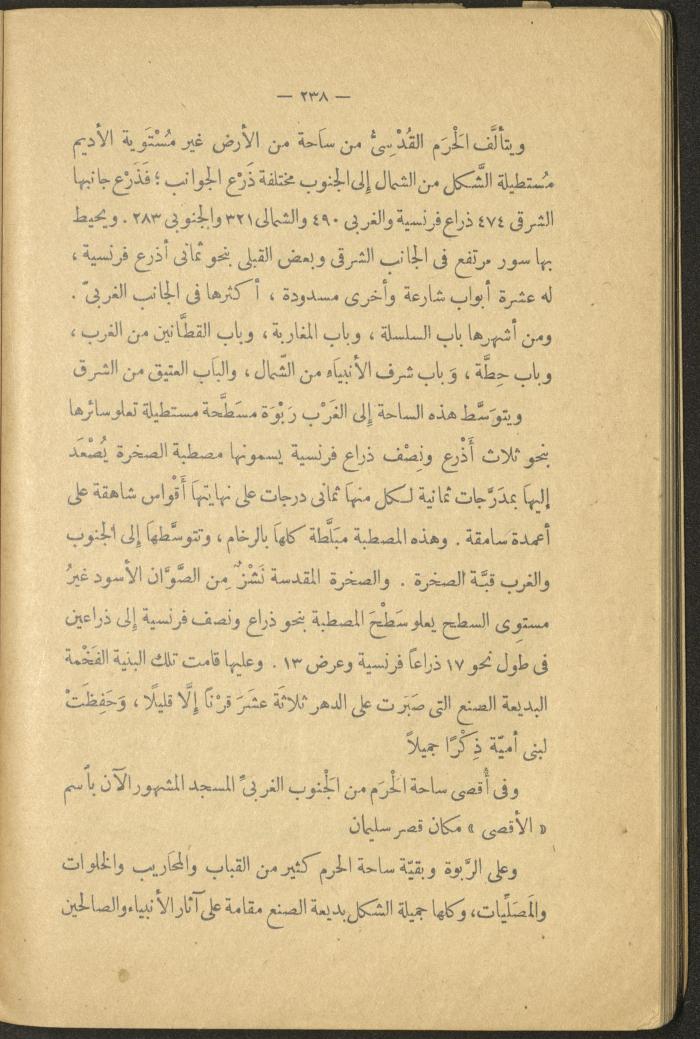 — ٢٣٨ —
ويتألَّف الحَرَم القُدْسِىُّ من سَاحة من الأرض غير مُسْتَوِية الأديم
مُستطيلة الشَّكل من الشمال إلى الجنوب مختلفة ذَرْع الجوانب ؛ فَذَرْع جانبها
الشرقى ٤٧٤ ذراع فرنسية والغربى ٤٩٠ والشمالى ٣٢١ والجنوبى ٢٨٣ . ويحيط
بها سور مرتفع فى الجانب الشرقى وبعض القبلى بنحو ثمانى أذرع فرنسية ،
له عشرة أبواب شارعة وأخرى مسدودة ، أكثرها فى الجانب الغربىّ .
ومن أشهرها باب السلسلة ، وباب المغاربة ، وباب القطَّانين من الغرب ،
وباب حِطَّة ، وَباب شرف الأنبيَاء من الشّمال ، والبَاب العتيق من الشرق
ويتوَسَّط هذه الساحة إلى الغَرْب رَبْوَة مسَطَّحة مستطيلة تعلو سائرها
بنحو ثلاث أَذْرع ونِصْف ذراع فرنسية يسمونها مصطبة الصخرة يُصْعَد
إليهَا بمدَرَّجات ثمانية لكل منهَا ثمانى درجات على نهايتهَا أَقْواس شاهقة على
أعمدة سامقة . وهذه المصطبة مبَلَّطة كلهَا بالرخام ، وتتوسَّطهَا إلى الجنوب
والغرب قبَّة الصخرة . والصخرة المقدسة نَشْزٌ مِن الصَّوَّان الأسود غيرُ
مستوِى السطح يعلو سَطْحَ المصطبة بنحو ذراع ونصف فرنسية إلى ذراعين
فى طول نحو ١٧ ذراعاً فرنسية وعرض ١٣ . وعليها قامت تلك البنية الفَخْمة
البديعة الصنع التى صَبَرَت على الدهر ثلاثَة عشَرَ قرْنًا إلَّا قليلًا ، وَحَفِظَتْ
لبنى أميّة ذِكْرًا جميلاً
وفى أَقصى ساحة الحَرَم من الجَنُوب الغربىِّ المسجد المشهور الآن بأسم
« الأقصى » مكان قصر سليمان
وعلى الرَّبوة وبقيّة ساحة الحرم كثير من القباب والمحَاريب والخلوات
والمصَلَّيات، وكلها جميلة الشكل بديعة الصنع مقامة على آثار الأنبياء والصالحين